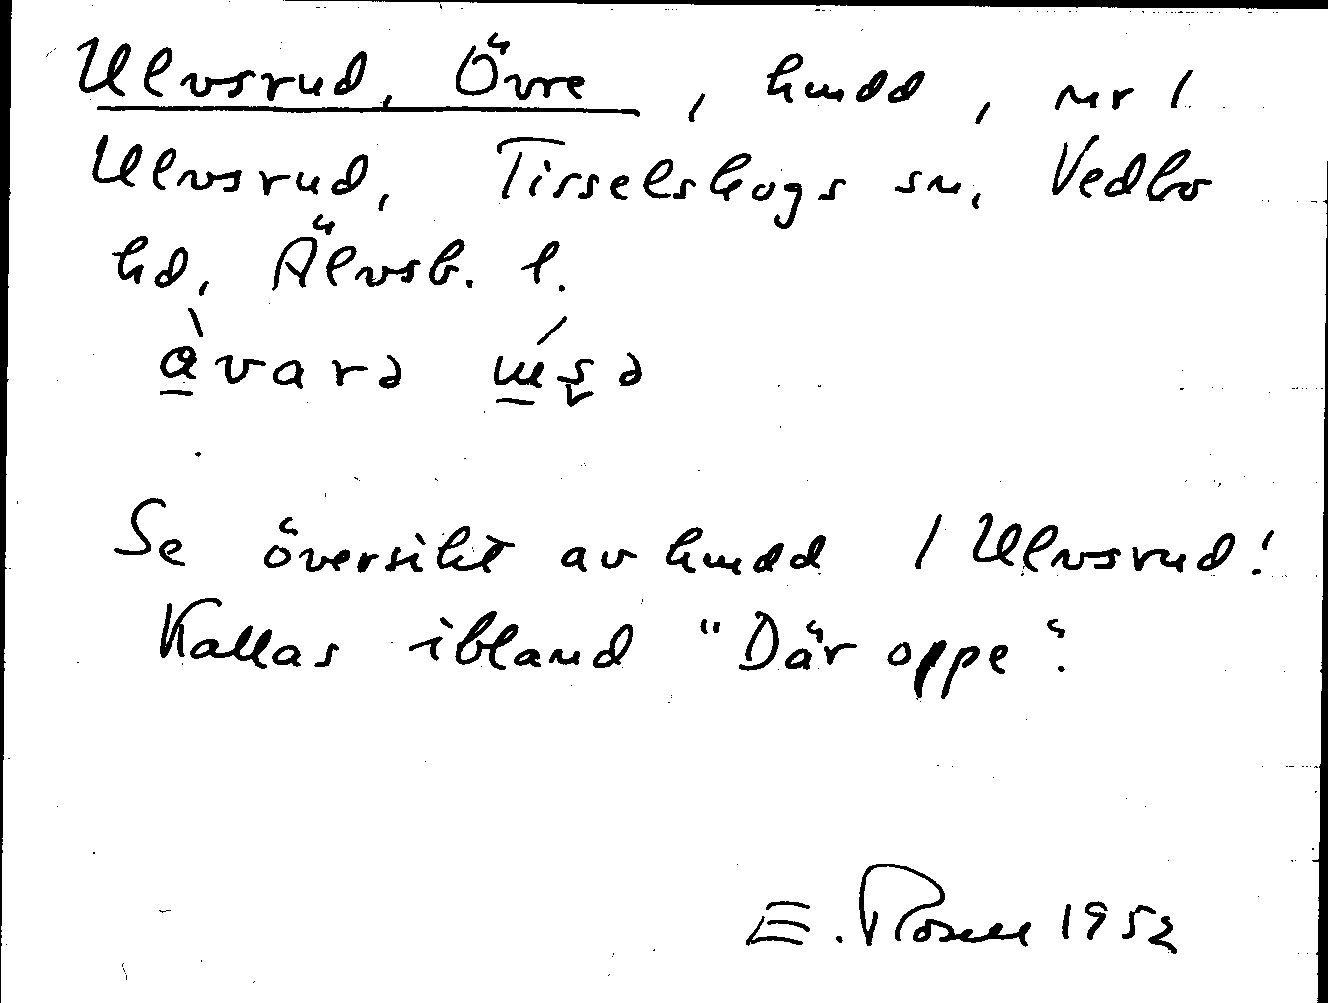 Ulvsrud, Övre, hmdd, nr 1
Ulvsrud, Tisselskogs sn, Vedbo
hd, Älvsb. l.
Se översikt av hmdd 1 Ulvsrud!
Kallas ibland "Där oppe".
E. Rosell 1952